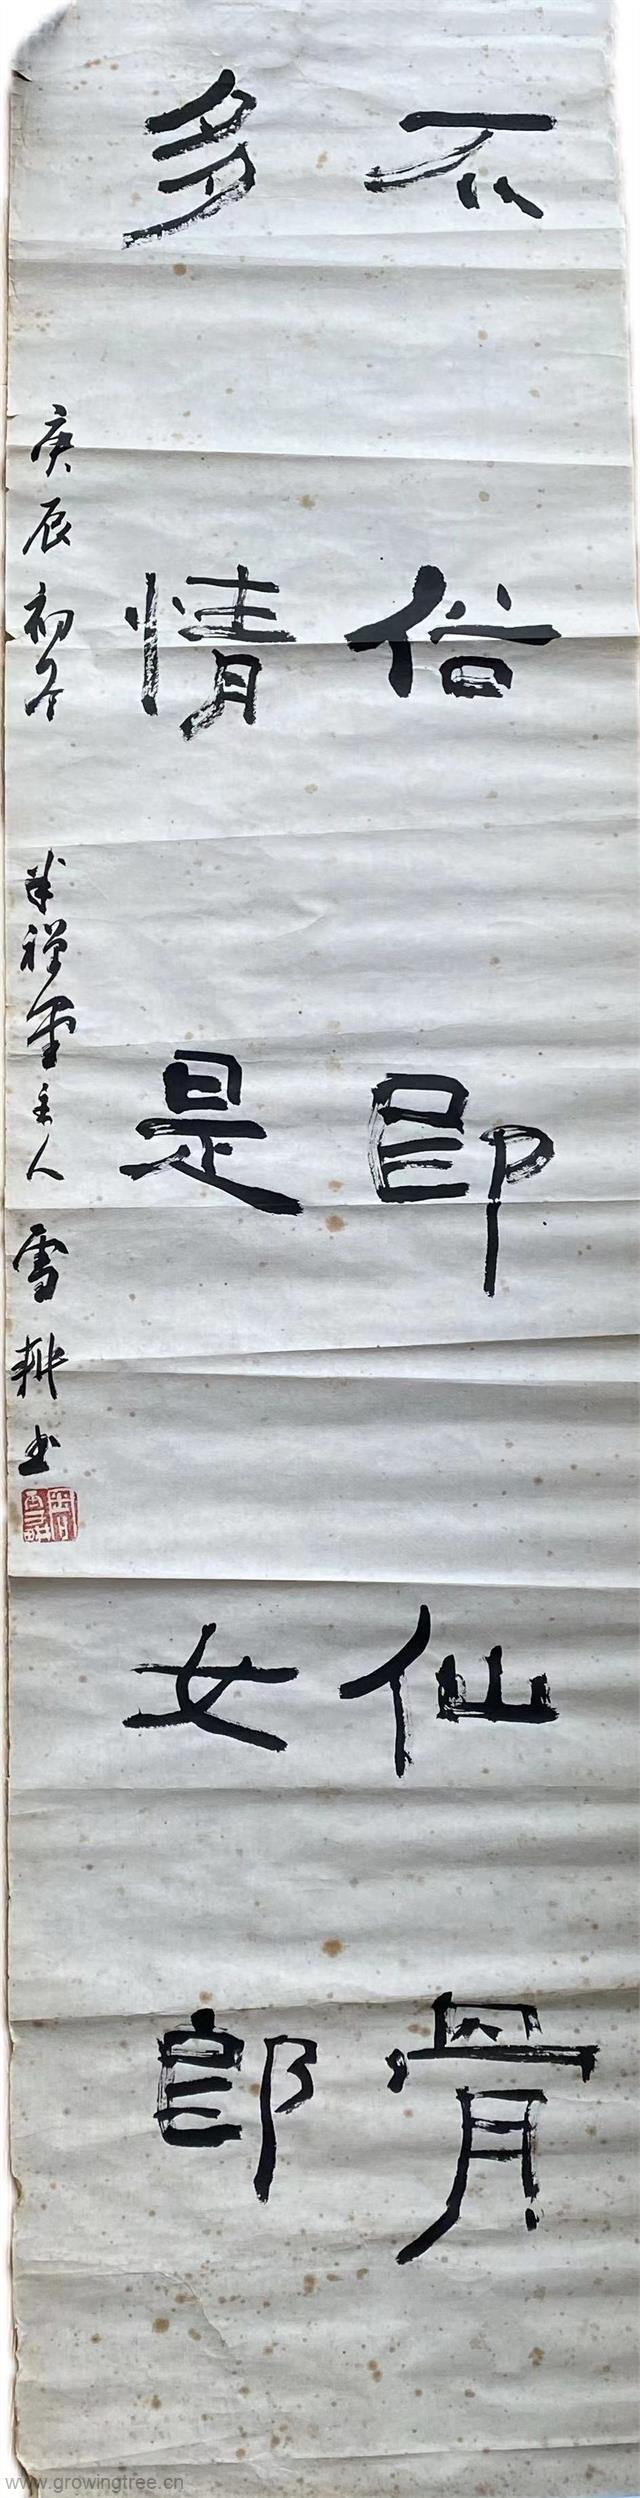 不俗即仙骨
多情是女郎
庚辰初冬 半禅堂主人 雪耕书
www.growingtree.cn